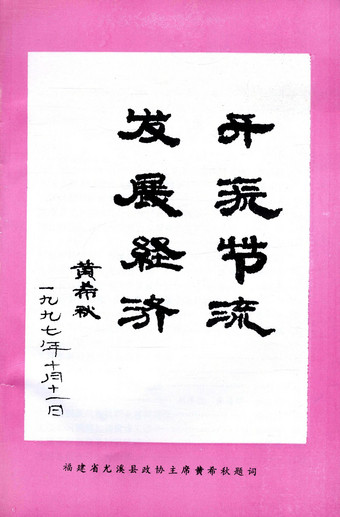 开源节流
发展经济
黄希秋
一九九七年十月十一日
福建省尤溪县政协主席黄希秋题词